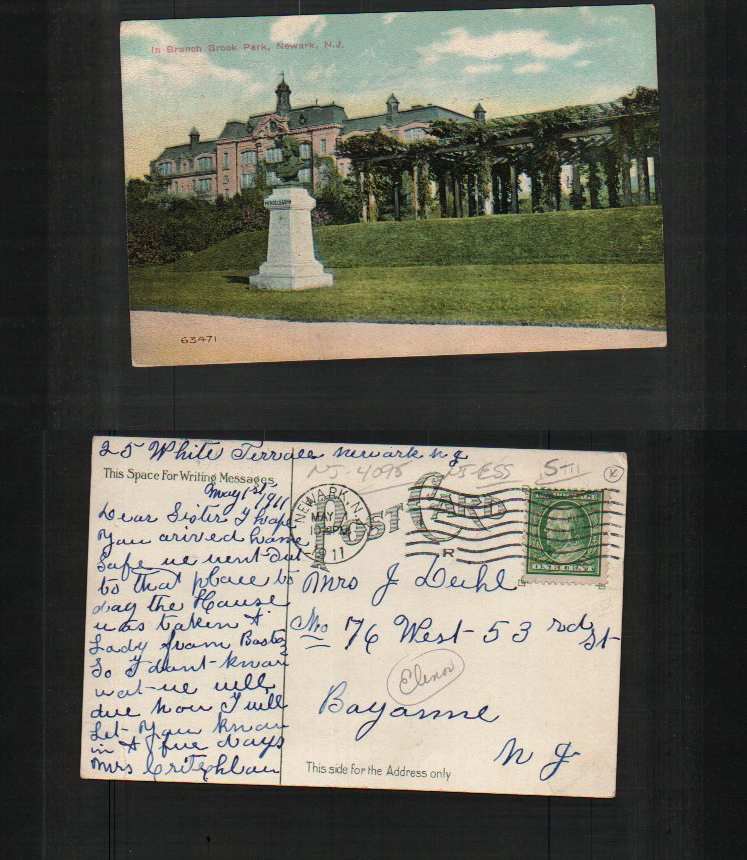 In Branch Brook Park, Newark, N.J.
MENDELSSOHN
63471
25 White Terrace Newark N J
NJ-4095 NJ-ESS 5-11
This Space For Writing Messages
May 1st, 1911
Dear Sister I hope
You arived home
Safe we went out
to that place to
day the House
was taken A
Lady from
So I dont know
wat we will
due now I will
Let You know
in A fue days
Mrs
NEWARK, N.J.
MAY
11
POST CARD
R
ONE CENT
Mrs J Diehl
No 76 West 53 rd St
Elenor
Bayonne
N J
This side for the Address only